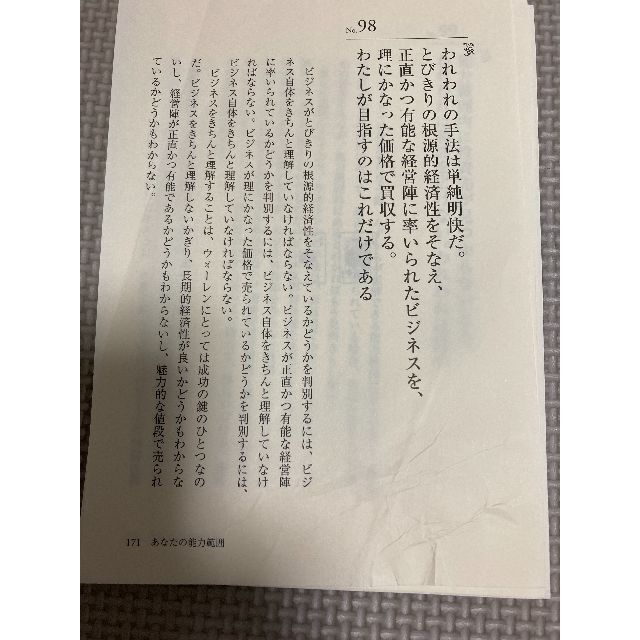 No.98
われわれの手法は単純明快だ。
とびきりの根源的経済性をそなえ、
正直かつ有能な経営陣に率いられたビジネスを、
理にかなった価格で買収する。
わたしが目指すのはこれだけである
ビジネスがとびきりの根源的経済性をそなえているかどうかを判別するには、ビジ
ネス自体をきちんと理解していなければならない。ビジネスが正直かつ有能な経営陣
に率いられているかどうかを判別するには、ビジネス自体をきちんと理解していなけ
ればならない。ビジネスが理にかなった価格で売られているかどうかを判別するには、
ビジネス自体をきちんと理解していなければならない。
ビジネスをきちんと理解することは、ウォーレンにとっては成功の鍵のひとつなの
だ。ビジネスをきちんと理解しないかぎり、長期的経済性が良いかどうかもわからな
いし、経営陣が正直かつ有能であるかどうかもわからないし、魅力的な値段で売られ
ているかどうかもわからない。
171 あなたの能力範囲